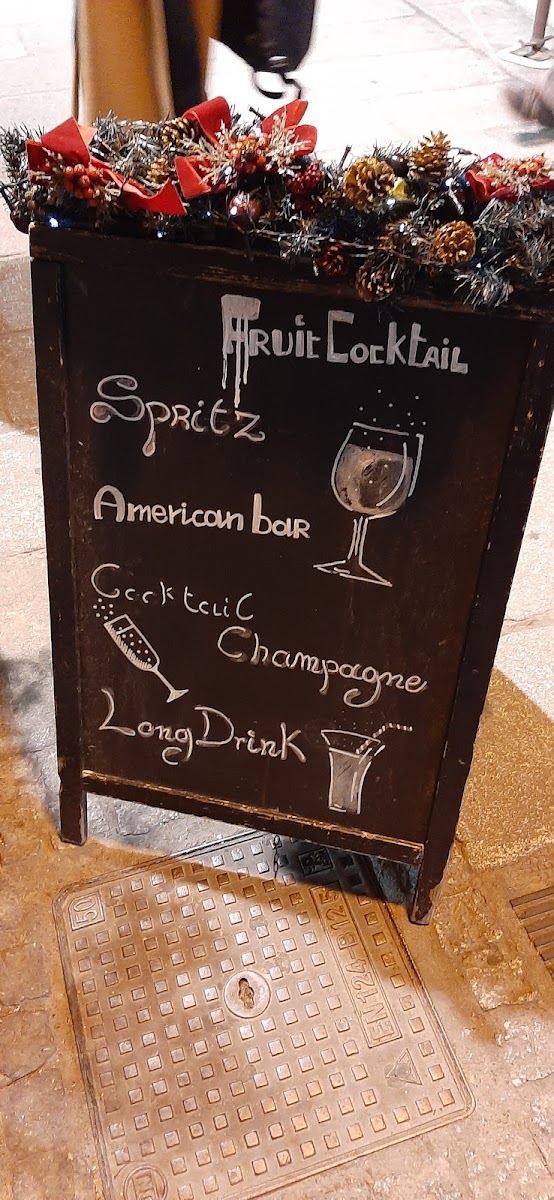 Fruit Cocktail
Spritz
American bar
Cocktail
Champagne
Long Drink
50
EN124 B125